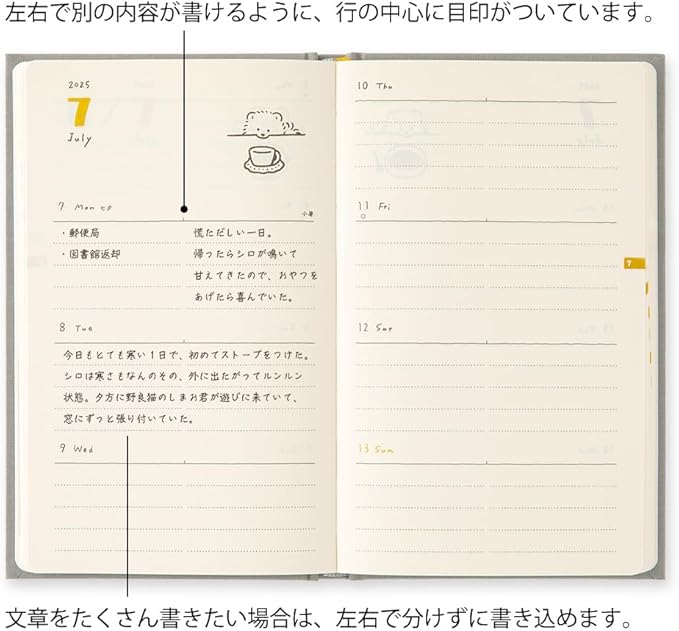 左右で別の内容が書けるように、行の中心に目印がついています。
2025
7
July
7 Mon 七夕
小暑
・郵便局
・図書館返却
慌ただしい一日。
帰ったらシロが鳴いて
甘えてきたので、おやつを
あげたら喜んでいた。
8 Tue
今日もとても寒い1日で、初めてストーブをつけた。
シロは寒さもなんのその、外に出たがってルンルン
状態。夕方に野良猫のしまお君が遊びに来ていて、
窓にずっと張り付いていた。
9 Wed
10 Thu
11 Fri
7
12 Sat
13 Sun
文章をたくさん書きたい場合は、左右で分けずに書き込めます。